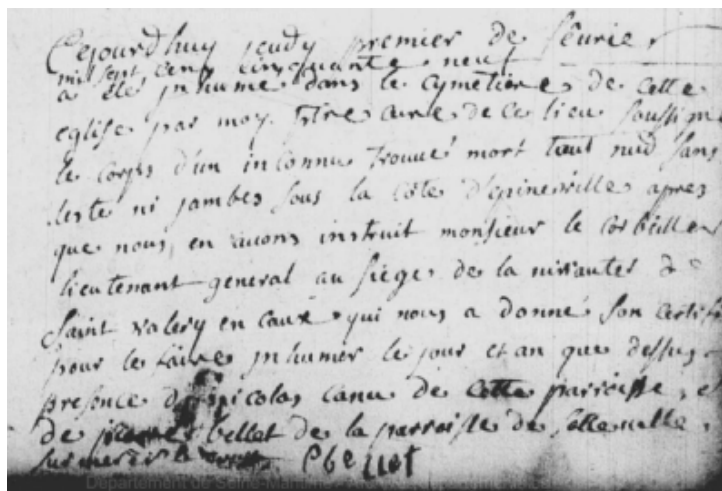 Cejourdhuy jeudy premier de fevrier
mil sept cens cinquante neuf
a été inhumé dans le cymetiere de cette
eglise par moy ptre curé de ce lieu soussigné
le corps d'un inconnu trouué mort tout nud sans
teste ni jambes sous la cote d'epineuille apres
que nous en auons instruit monsieur le corbeiller
lieutenant general au siege de la
saint valery en caux qui nous a donné son certifi
pour le faire inhumer le jour et an que dessus
presence de nicolas canu de cette parroisse, et
de bellet de la parroisse de sotteuille
sur mer
Département de Seine-Maritime